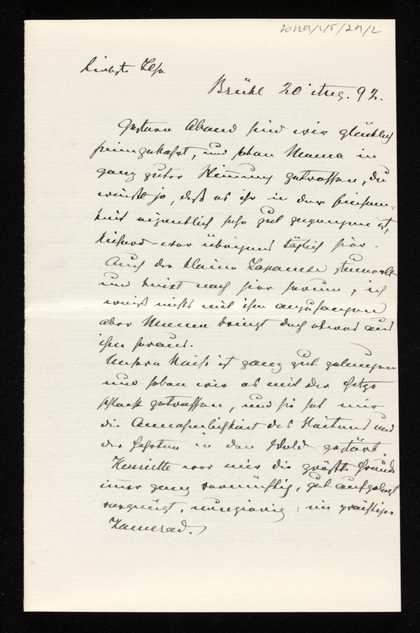 Liebste Ilse
Brühl 20 Aug. 92.
Gestern Abend sind wir glücklich
heimgekehrt, und haben Mama in
ganz guter Stimmung getroffen, Du
weißt ja, daß es ihr in der
eigentlich sehr gut gegangen ist,
war übrigens täglich hier.
Auch der kleine Japanese
und hier herum, ich
weiß nichts mit ihm anzufangen
aber Mama bringt doch etwas aus
ihm heraus.
Unsere Reise ist ganz gut gelungen
und haben wir es mit der Hitze
schlecht getroffen, und sie hat mir
die Annehmlichkeit des Reitens und
des Gehens in den Wald gestört.
Henriette war mir die größte Freude
immer ganz vernünftig, gut aufgelegt
vergnügt, neugierig, ein prächtiger
Kamerad.